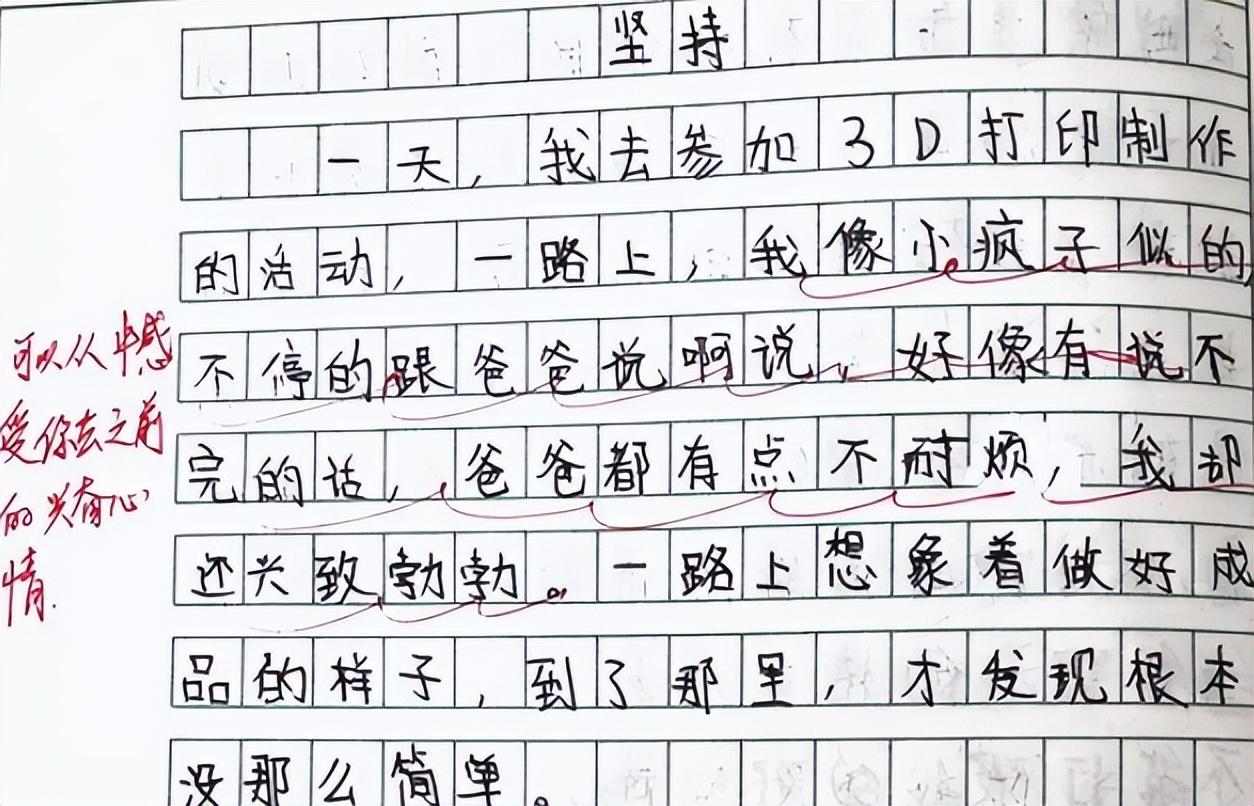 坚持
一天，我去参加3D打印制作
的活动，一路上，我像小疯子似的，
不停的跟爸爸说啊说，好像有说不
完的话，爸爸都有点不耐烦，我却
还兴致勃勃。一路上想象着做好成
品的样子，到了那里，才发现根本
没那么简单。
可以从中感
受你去之前
的兴奋心
情.